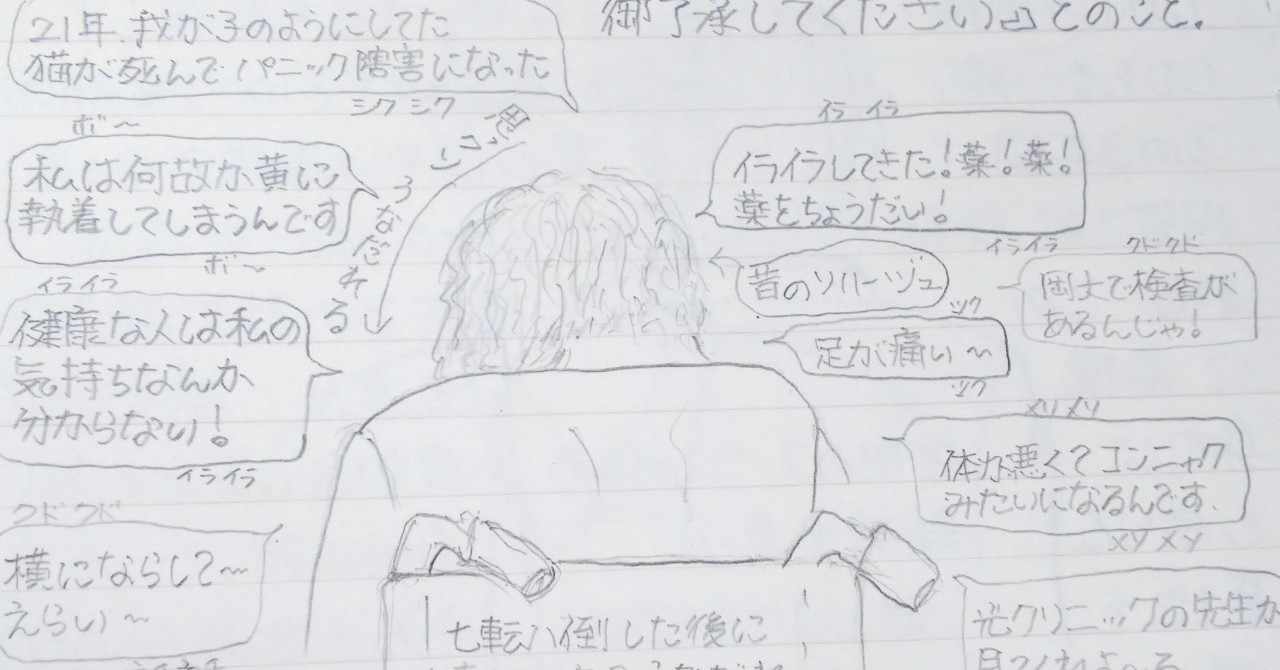 御了承してください』とのこと。
21年、我が子のようにしてた
猫が死んでパニック障害になった
シクシク
ボ〜
私は何故か黄に
執着してしまうんです
ボ〜
イライラ
健康な人は私の
気持ちなんか
分からない!
イライラ
クドクド
横にならして〜
えらい〜
うなだれる
イライラ
イライラしてきた!薬!薬!
薬をちょうだい!
イライラ
昔のソバージュ
クドクド
岡大で検査が
あるんじゃ!
ヅク
足が痛い〜
ヅク
メソメソ
体が悪くてコンニャク
みたいになるんです。
メソメソ
光クリニックの先生が
七転八倒した後に